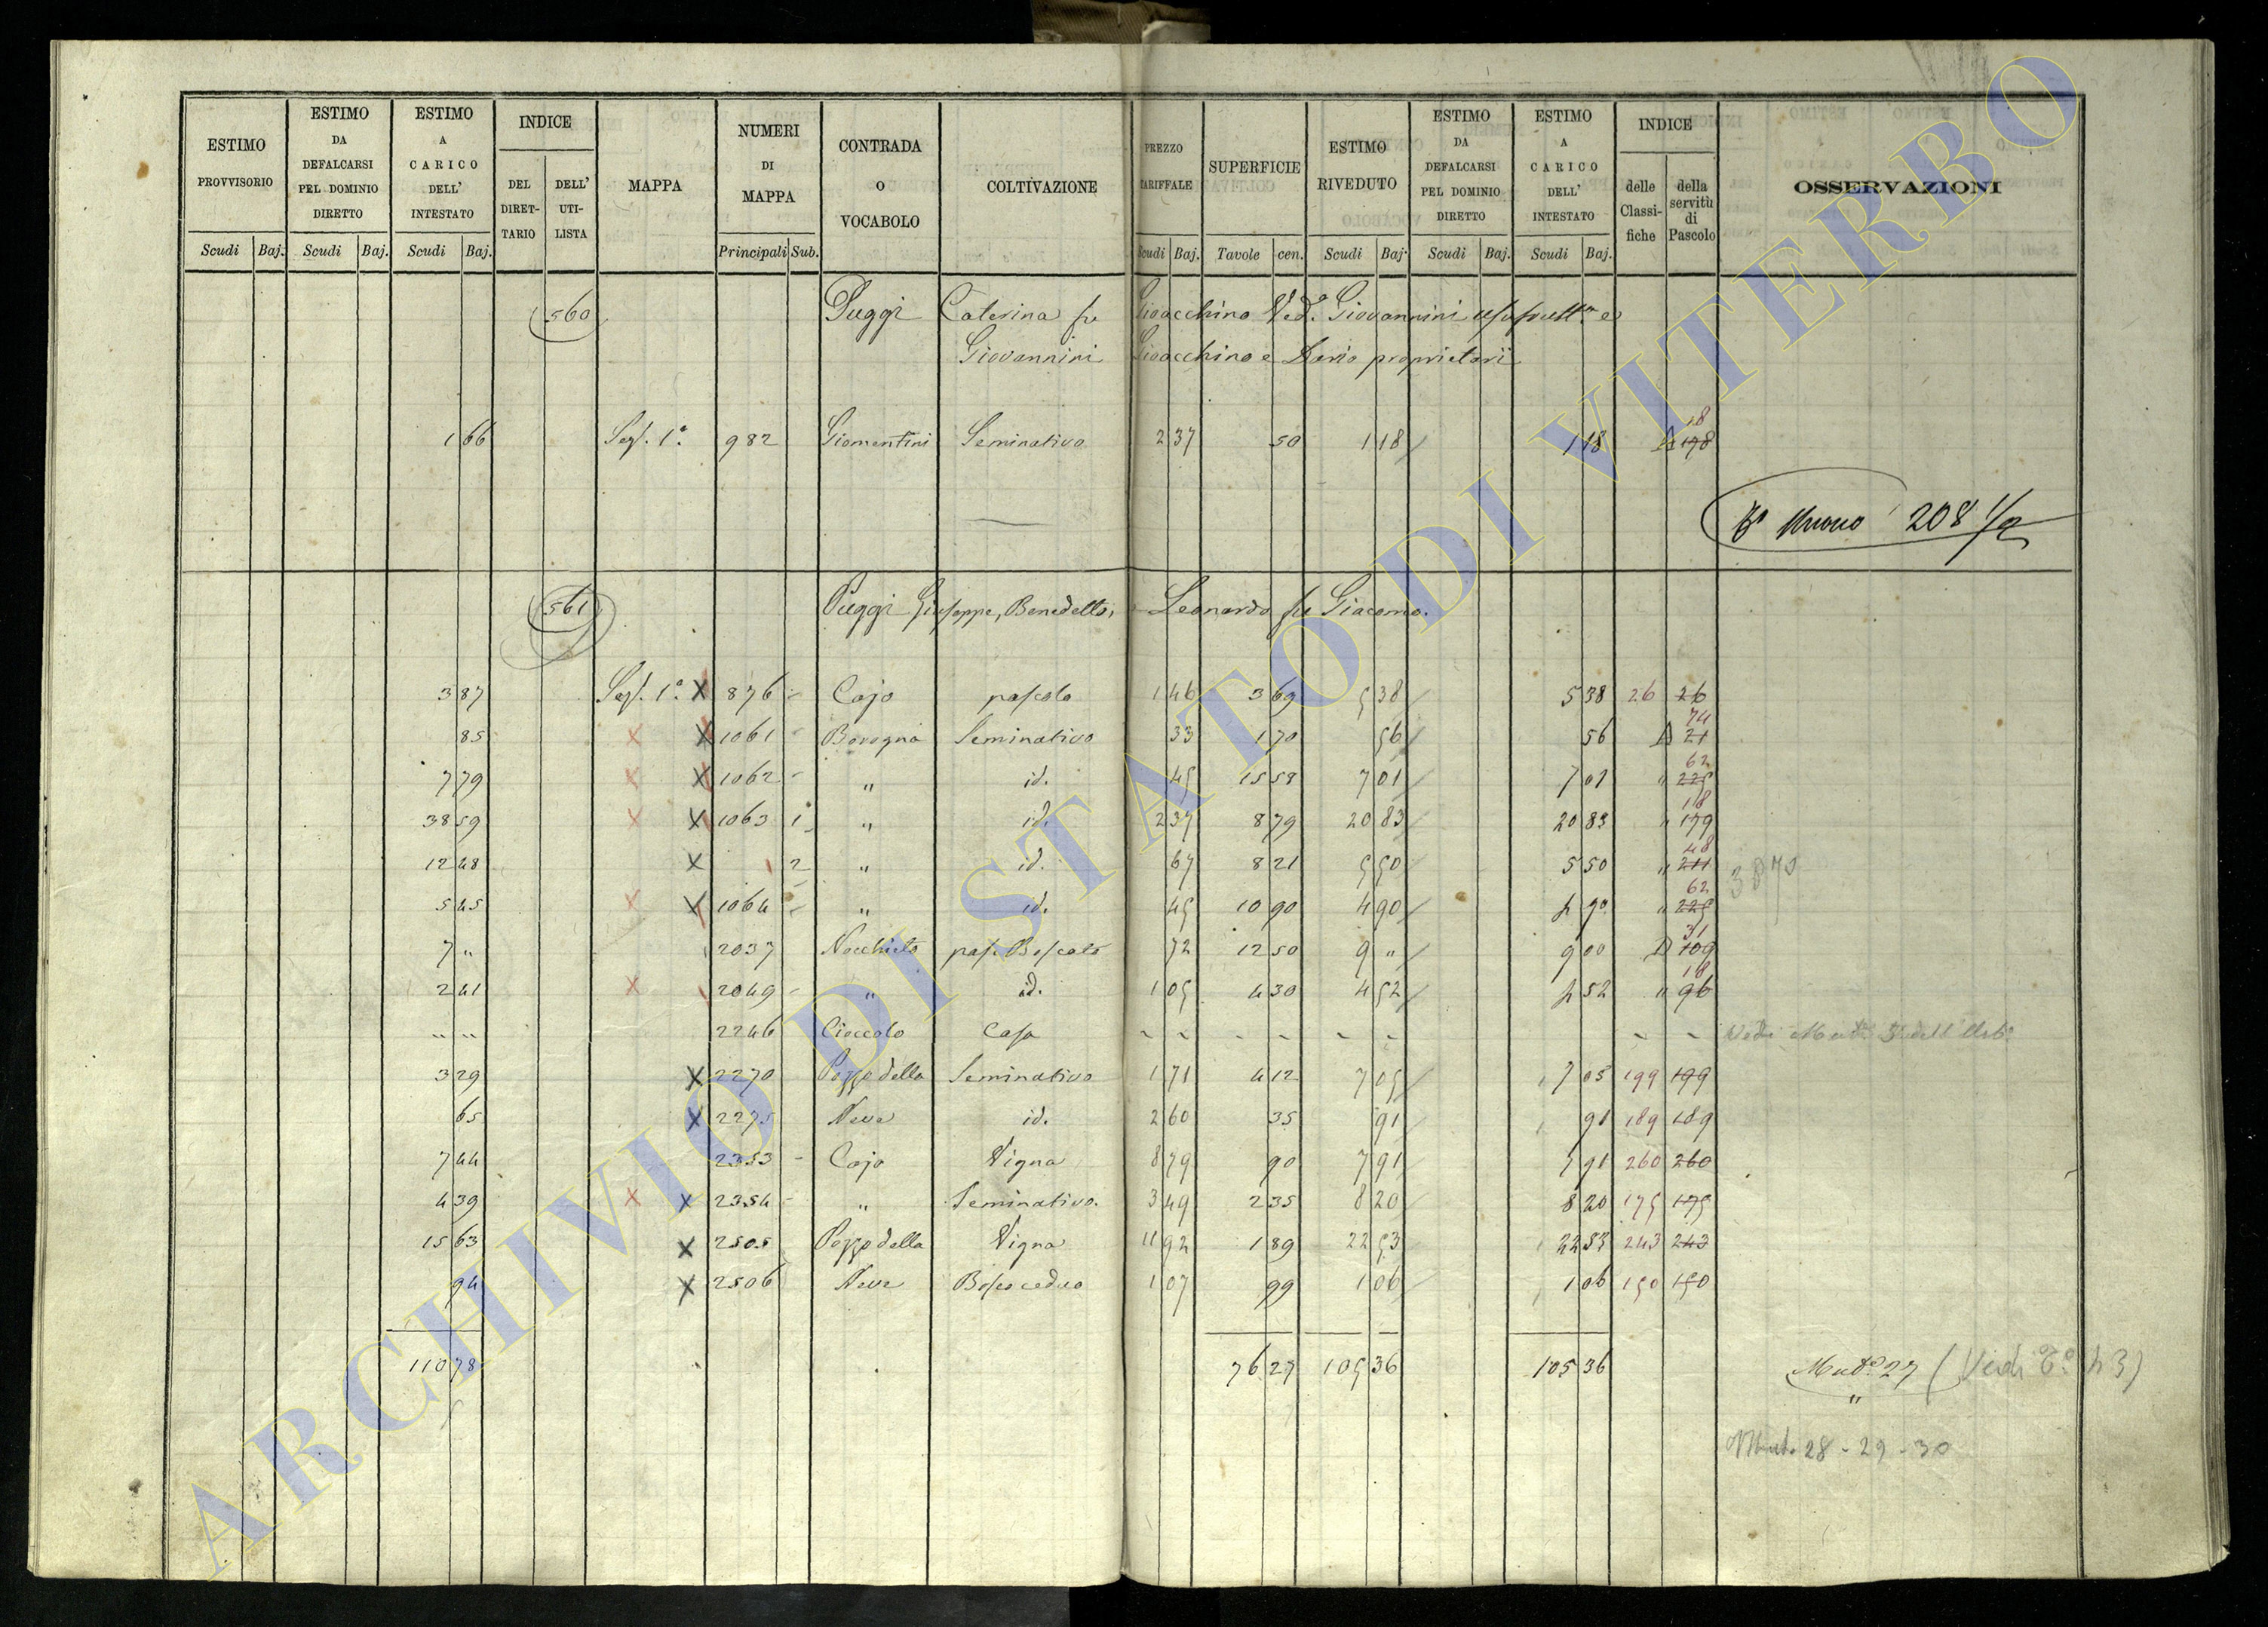 ESTIMO PROVVISORIO | ESTIMO DA DEFALCARSI PEL DOMINIO DIRETTO | ESTIMO A CARICO DELL' INTESTATO | INDICE DEL DIRETTARIO | DELL' UTILISTA | MAPPA | NUMERI DI MAPPA | CONTRADA O VOCABOLO | COLTIVAZIONE | PREZZO TARIFFALE | SUPERFICIE | ESTIMO RIVEDUTO | ESTIMO DA DEFALCARSI PEL DOMINIO DIRETTO | ESTIMO A CARICO DELL' INTESTATO | INDICE delle Classifiche | della servitù di Pascolo | OSSERVAZIONI
Scudi | Baj. | Scudi | Baj. | Scudi | Baj. | Principali | Sub. | Scudi | Baj. | Tavole | cen. | Scudi | Baj. | Scudi | Baj. | Scudi | Baj.
560 Puggi Caterina fu Gioacchino Ved.ª Giovannini usufrutt.ª e
Giovannini Gioacchino e Dario proprietari
18
1 66 | Sez. 1ª | 982 | Giomentini | Seminativo | 2 37 | 50 | 1 18 | 1 18 | 178
Nuovo 208 1/2
561 Puggi Giuseppe, Benedetto, e Leonardo fu Giacomo.
3 87 | Sez. 1ª X | 876 | Cajo | pascolo | 1 46 | 3 69 | 5 38 | 5 38 | 26 | 26
74
85 | X X | 1061 | Bovogna | Seminativo | 33 | 1 70 | 56 | 56 | 21
62
7 79 | X X | 1062 | " | id. | 45 | 15 58 | 7 01 | 7 01 | " 225
18
38 59 | X X | 1063 | 1 | " | id. | 2 37 | 8 79 | 20 83 | 20 83 | " 179
48
12 48 | X | 2 | " | id. | 67 | 8 21 | 5 50 | 5 50 | " 211 | 3870
62
5 45 | X X | 1064 | " | id. | 45 | 10 90 | 4 90 | 4 90 | " 225
31
7 " | 2037 | Nocchieto | pas. Boscato | 72 | 12 50 | 9 " | 9 00 | 109
18
2 41 | X | 2049 | " | id. | 1 05 | 4 30 | 4 52 | 4 52 | " 96
" " | 2246 | Cioccolo | Casa | - - | - - | - - | - - | Vedi
3 29 | X | 2270 | Pozzo della | Seminativo | 1 71 | 4 12 | 7 05 | 7 05 | 199 | 199
65 | X | 2275 | Neve | id. | 2 60 | 35 | 91 | 91 | 189 | 189
7 44 | 2353 | Cajo | Vigna | 8 79 | 90 | 7 91 | 7 91 | 260 | 260
4 39 | X X | 2354 | " | Seminativo. | 3 49 | 2 35 | 8 20 | 8 20 | 175 | 175
15 63 | X | 2505 | Pozzo della | Vigna | 11 92 | 1 89 | 22 53 | 22 53 | 243 | 243
94 | X | 2506 | Neve | Bosco ceduo | 1 07 | 99 | 1 06 | 1 06 | 150 | 150
110 78 | 76 27 | 105 36 | 105 36 | Mut.ª 27 (Vedi
28 - 29 - 30
ARCHIVIO DI STATO DI VITERBO